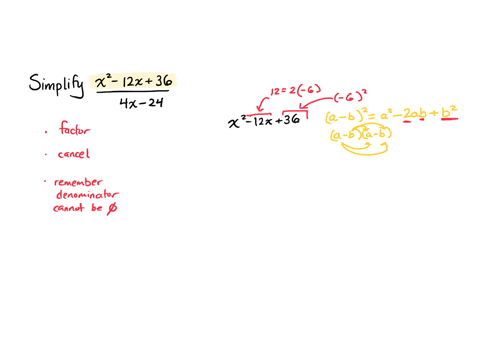 Simplify x² - 12x + 36 / 4x - 24
• factor
• cancel
• remember
denominator
cannot be 0
12 = 2(-6)
(-6)²
x² - 12x + 36
(a-b)² = a² - 2ab + b²
(a-b)(a-b)